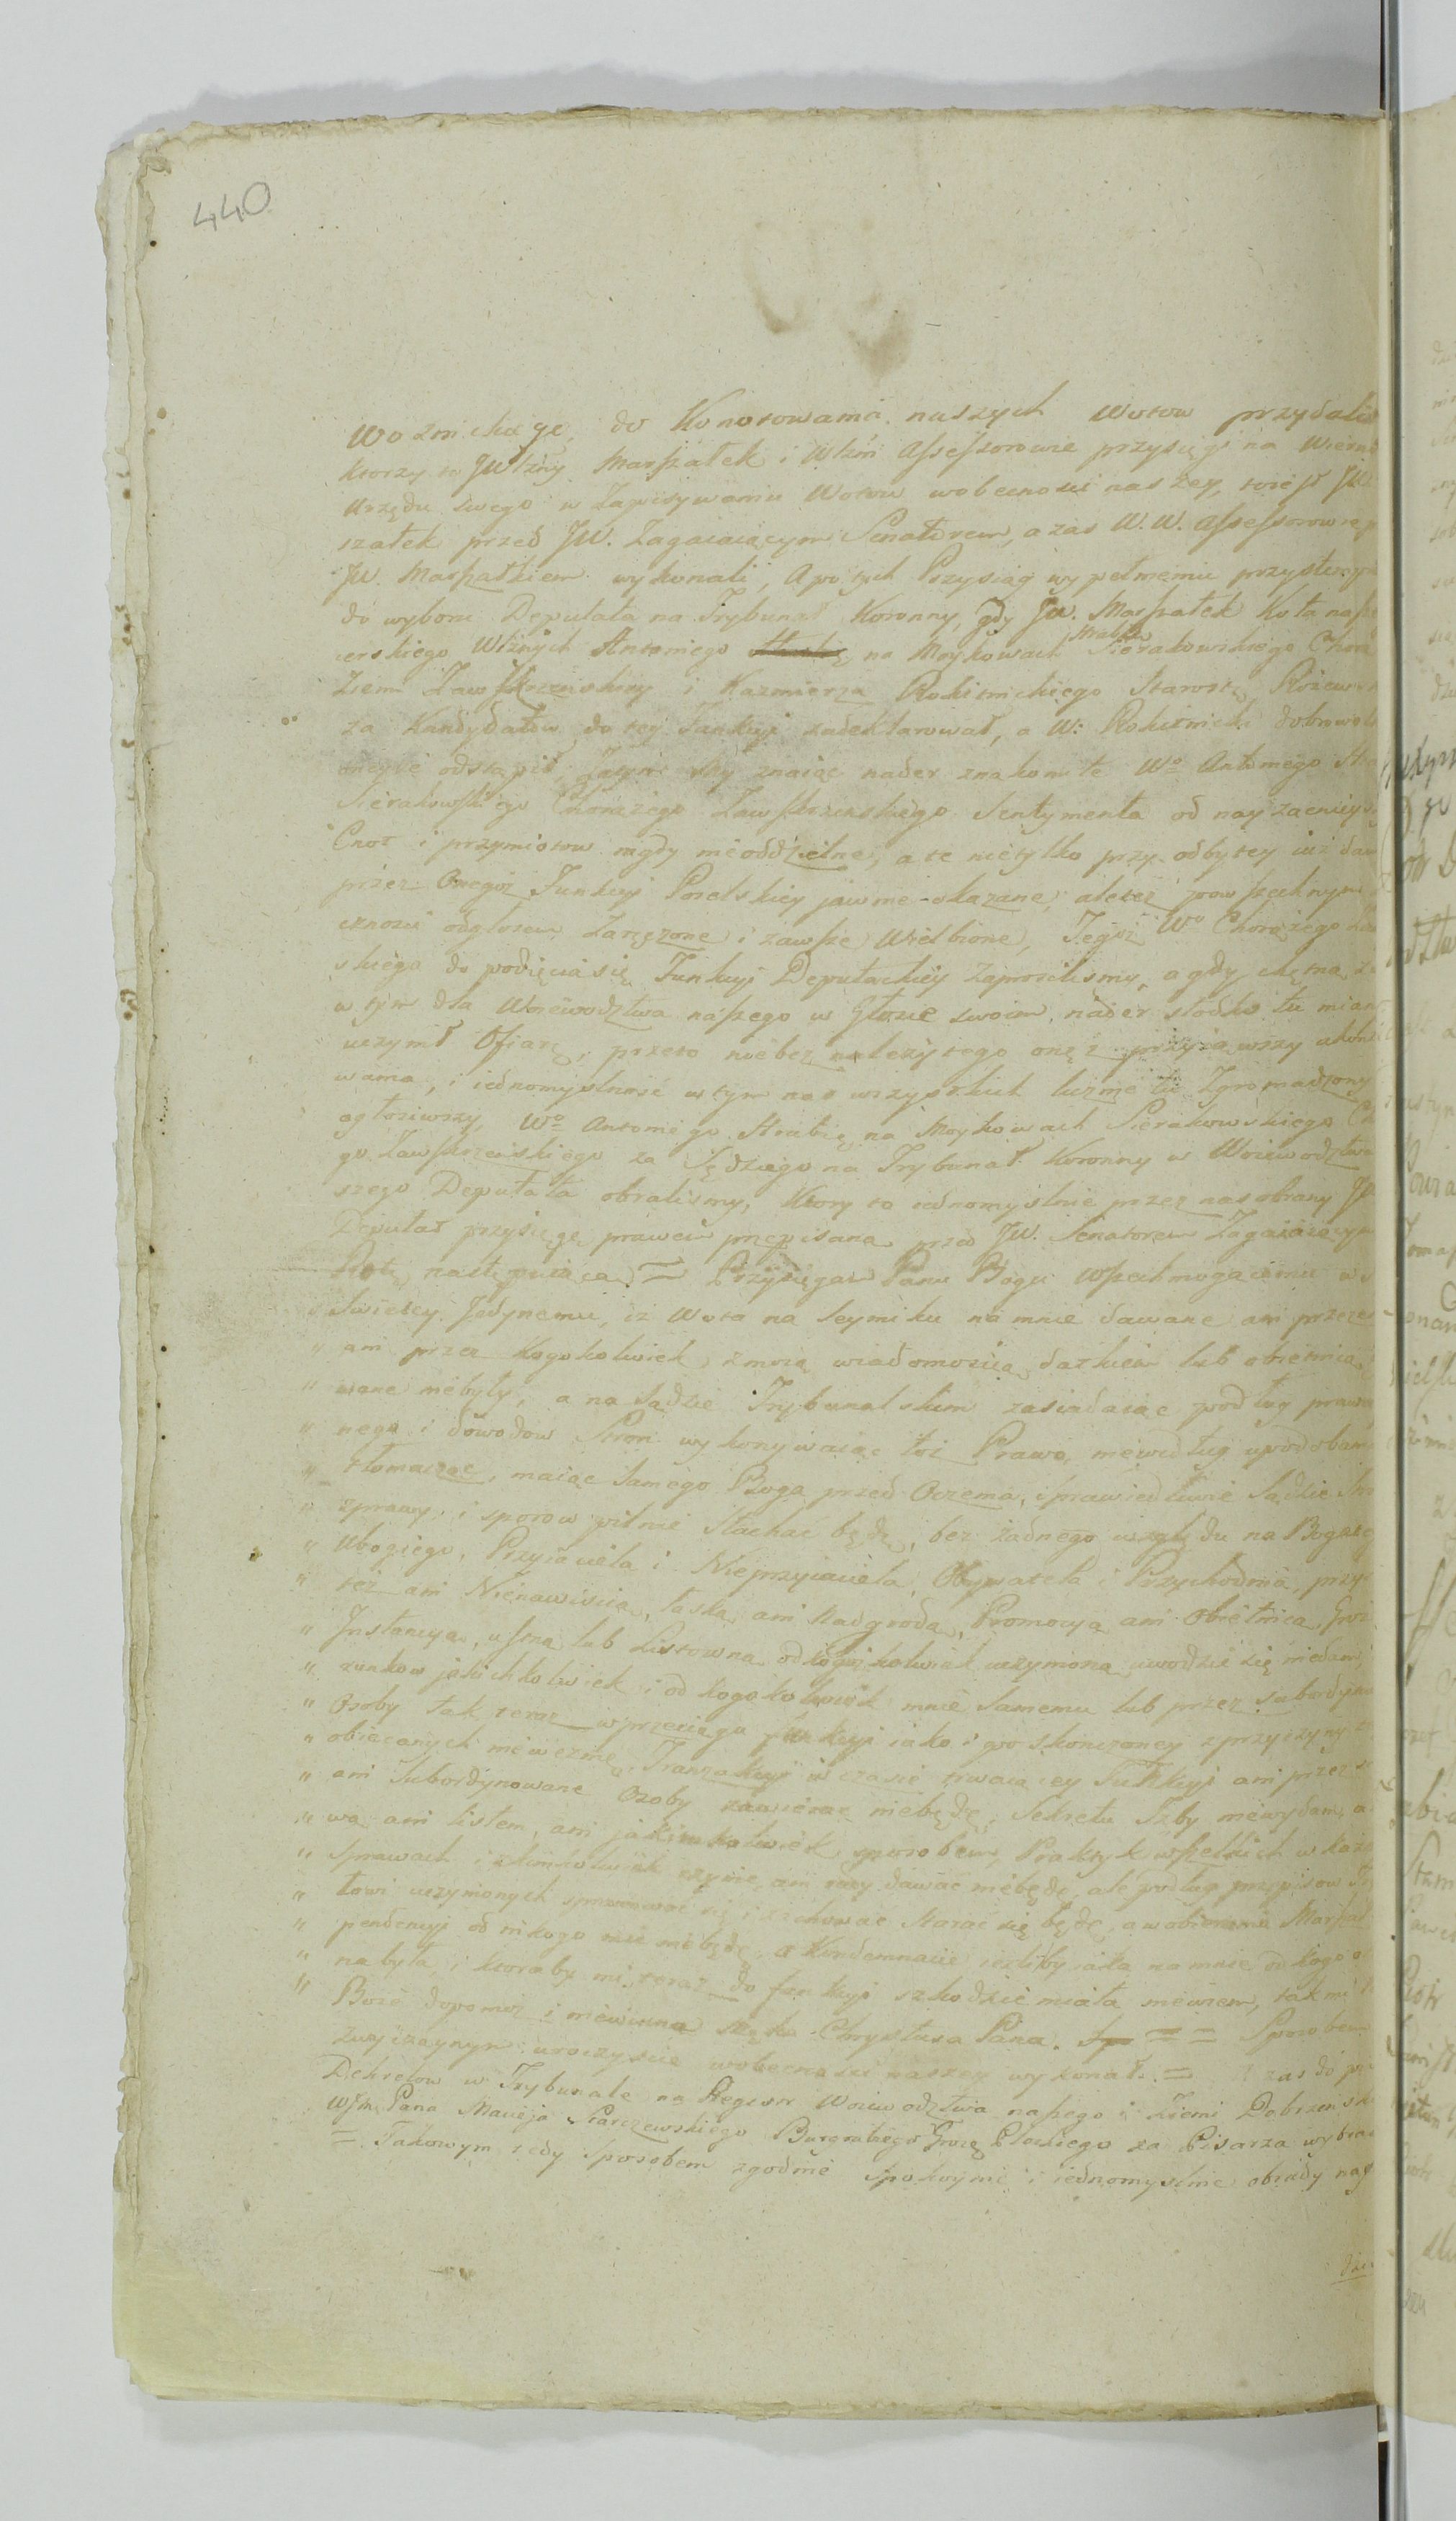 440
do Konotowania naszych Wotow przydali
Ktorzy to JWIzny Marszałek i Wlzni Assessorowie przysięgę na Wiern
Urzędu swego w Zapisywaniu Wotow wobecnosci naszey, toiest JW
szałek przed JW. Zagaiaiącym Senatorem, a zas W.W. Assessorowie p
JW. Marszałkiem wykonali, A po tych Przysiąg wypełnieniu przystąpi
do wyboru Deputata na Trybunał Koronny, gdy JW. Marszałek Koła nasze
cerskiego Wlznych Antoniego na Moykowach Hrabię Sierakowskiego Chorą
Ziemi Zawskrzenskiey i Kazmierza Rokitnickiego Starostę
za Kandydatow do tey Funkcyi zadeklarował, a W: Rokitnicki dobrowol
oneyże odstąpił, Zatym My znaiąc nader znakomite Wo Antoniego
Sierakowskiego Chorążego Zawskrzenskiego Sentymenta od nayzacnieysz
Cnot i przymiotow nigdy nieoddzielne, a te nietylko przy odbytey iuż daw
przez Onegoż Funkcyi Poselskiey jawnie okazane, aletez powszechnym
cznosci odgłosem Zaręzone i zawsze Wielbione, Tegoż Wo Chorążego
skiego do podięcia się Funkcyi Deputackiey Zaprosilismy, a gdy chętną z
w tym dla Woiewodztwa naszego w Głosie swoim nader słodko tu mian
uczynił Ofiarę, przeto niebez należytego onęż przyiąwszy
wania, i iednomyslnosc w tym nas wszystkich licznie tu Zgromadzony
ogłosiwszy, Wo Antoniego Hrabię na Moykowach Sierakowskiego Ch
go Zawskrzenskiego za Sędziego na Trybunał Koronny w Woiewodztwa
szego Deputata obralismy, Ktory to iednomyslnie przez nas obrany JW
Deputat przysięgę prawem przepisaną przed JW. Senatorem Zagaiaiącym
Rotę następuiącą = Przysięgam Panu Bogu Wszechmogącemu w
Swietey Jedynemu, iż Wota na Seymiku na mnie dawane ani przeze
" ani przez Kogokolwiek z moią wiadomoscią datkiem lub obietnicą
" wane niebyły, a na Sądzie Trybunalskim zasiadaiąc podług prawa
" nego i dowodow Stron wykonywaiąc toż Prawo, niewedług upodobani
" tłomacząc, maiąc Samego Boga przed Oczema, sprawiedliwie Sądzić
" sprawy i sporow pilnie Słuchać będę, bez żadnego względu na Bogateg
" Ubogiego, Przyiaciela i Nieprzyiaciela, Obywatela i Przychodnia, przy
" też ani Nienawiscią, łaską ani Nadgrodą, Promocyą ani Obietnicą, Groź
" Jnstancyą, ustną lub Listowną od kogożkolwiek uczynioną uwodzić się niedam,
" runkow jakichkolwiek i od kogokolwiek mnie Samemu lub przez subordyno
" Osoby tak teraz w przeciągu funkcyi iako i po skonczoney z przyczyny
" obiecanych niewezmę, Tranzakcyi w czasie trwaiącey Funkcyi ani przez
" ani Subordynowane Osoby zawierać niebędę, Sekretu Izby niewydam, a
" wą ani listem, ani jakimkolwiek sposobem, Praktyk wszelkich w każ
" Sprawach i zkimkolwiek czynić ani rady dawać niebędę, ale podług przepisow
" łowi uczynionych sprawować się i zachować starać się będę, a w obieraniu Marszał
" pendencyi od nikogo miec niebędę, a Kondemnacie iezliby iaka na mnie od kogo
" nabyta, i ktoraby mi teraz do funkcyi szkodzić miała niewiem, tak mi
" Boże dopomoż i niewinna Męka Chrystusa Pana. = = Sposobem
zwyczaynym uroczyscie wobecnosci naszey wykonał. = A zas do
Dekretow w Trybunale na Regestr Woiewodztwa naszego i Ziemi Dobrzensk
WJm Pana Macieja Starczewskiego Burgrabiego Grodz Płockiego za Pisarza wybra
= Takowym tedy Sposobem zgodnie Spokoynie i iednomyslnie obrady